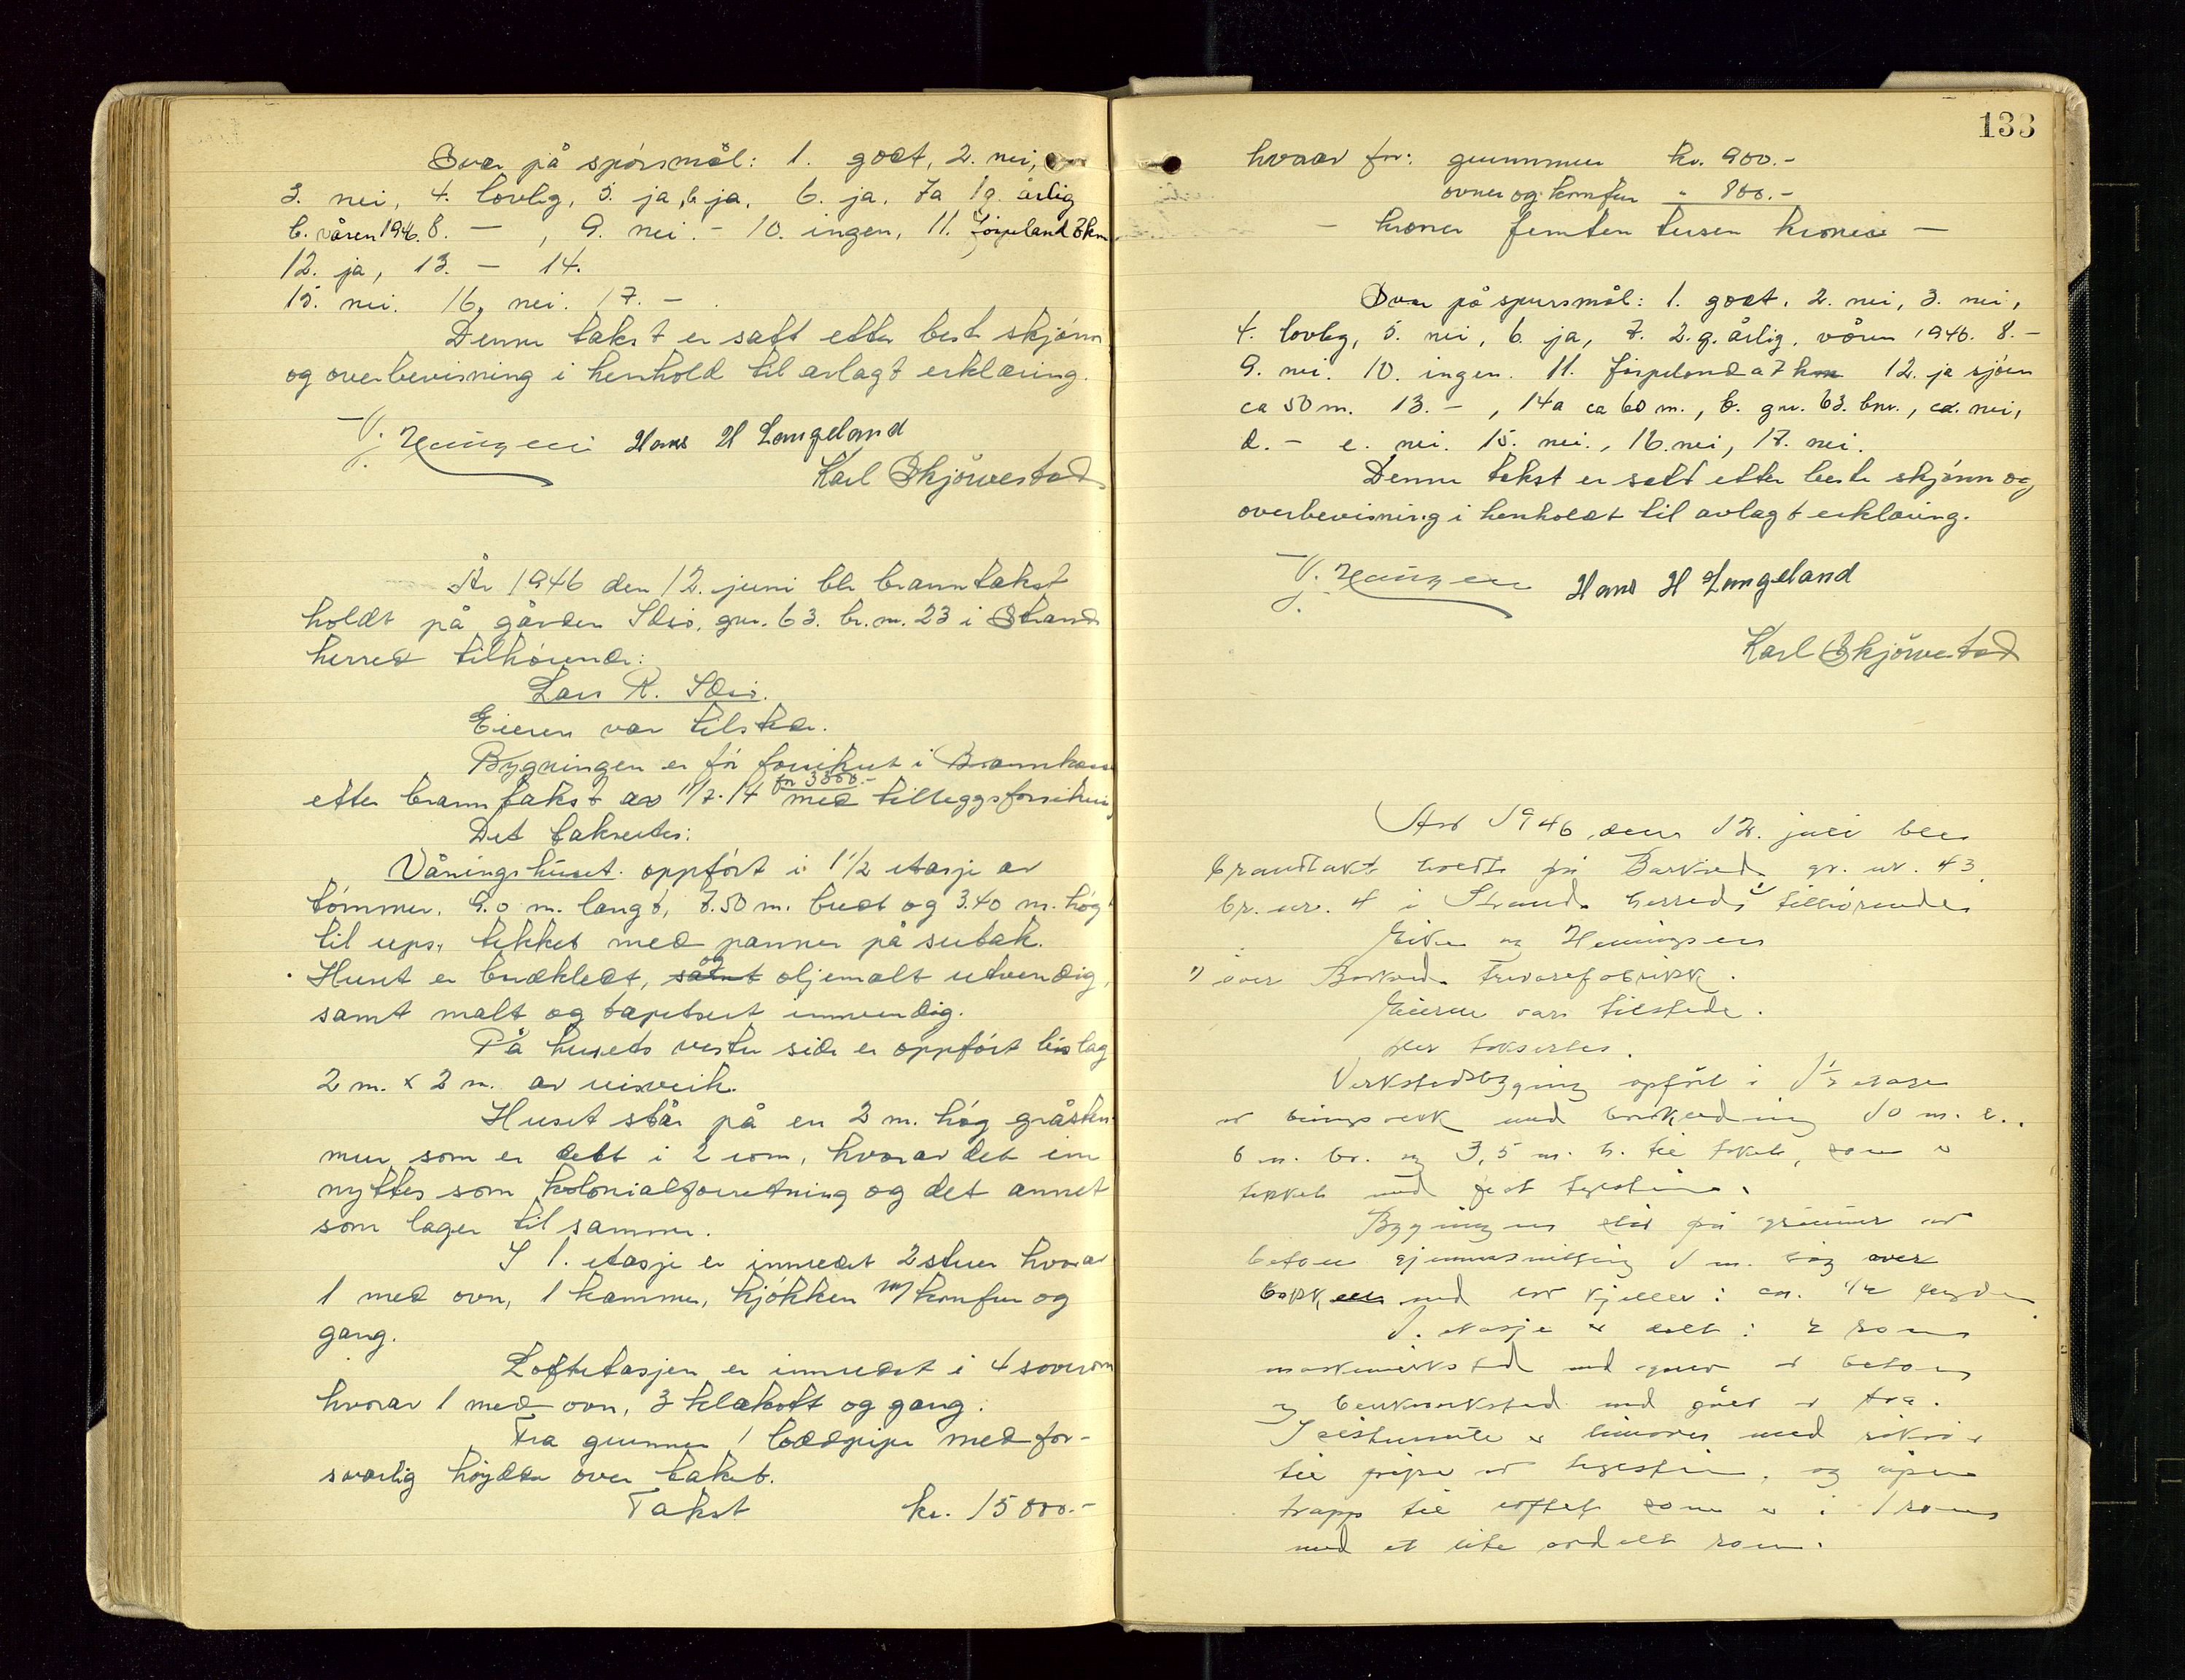 Svar på spörsmål: 1. godt, 2. nei,
3. nei, 4. lovlig, 5. ja, b. ja. 6. ja. 7a 1 g. årlig
b. våren 1946. 8. — , 9. nei. - 10. ingen, 11. Jörpeland 7 km
12. ja, 13. — 14.
15. nei. 16, nei. 17. —
Denne takst er satt etter best skjönn
og overbevisning i henhold til avlagt erklæring.
Hans H Langeland
Karl Skjörvestad
År 1946 den 12. juni ble branntakst
holdt på gården Idsö, gnr. 63. br.nr. 23 i Strand
herred tilhörende:
Lars R. Idsö.
Eieren var tilstede.
Bygningen er för forsikret i Brannkasse
for 3300.-
etter branntakst av 11/7-14 med tilleggsforsikring
Det takseertes:
Våningshuset. oppfört i 1 1/2 etasje av
tömmer. 9.0 m. langt, 7.50 m. bredt og 3.40 m. högt
til ups, tekket med panner på sutak.
Huset er bordkledt, samt og oljemalt utvendig,
samt malt og tapetsert innvendig.
På husets vestre side er oppfört bislag
2 m. x 2 m. av reisverk.
Huset står på en 2 m. hög gråsten-
mur som er delt i 2 rom, hvorav det ene
nyttes som kolonialforretning og det annet
som lager til samme.
I 1. etasje er innredet 2 stuer hvorav
1 med ovn, 1 kammer, kjökken m/ komfur og
gang.
Loftetasjen er innredet i 4 soverom
hvorav 1 med ovn, 3 klekott og gang.
Fra grunnen 1 loddpipe med for-
svarlig höyde over taket.
Takst kr. 15000.-
133
hvorav for: grunnmuren kr. 900.-
ovner og komfur " 800.-
— kroner femten tusen kroner —
Svar på spursmål: 1. godt. 2. nei, 3. nei,
4. lovlig, 5. nei, 6. ja, 7. 2. g. årlig. våren 1946. 8. -
9. nei. 10. ingen. 11. Jörpeland a 7 km 12. ja sjöen
ca 50 m. 13. - , 14a ca 60 m., b. gnr. 63. bnr., c. nei,
d. - e. nei. 15. nei., 16. nei, 17. nei.
Denne takst er satt etter beste skjönn og
overbevisning i henholdt til avlagt erklæring.
Hans H Langeland
Karl Skjörvestad
Året 1946 den 12. juli blev
brandtakst holdt på Barkved gr. nr. 43
br. nr. 4 i Strand herred tilhörende
Eike og Henningsen
över Barkved Trevarefabrikk.
Eierne var tilstede.
Der taksertes.
Verkstedsbygning opfört i 1 1/2 etasje
av bingverk med bordkledning 10 m. l.
6 m. br. og 3,5 m. h. til taket, som er
tekket med
Bygningen står på grunnmur av
beton gjennemsnittlig 1 m. höy over
bakken med en kjeller i ca. 1/2 lengden
1. etasje er delt i 2 rom
maskinverksted med gulv av beton
og benkverksted med gulv av tre.
I sistnevnte er limovn med rökrör
til pipe av teglstein, og åpen
trapp til loftet som er i 1 rom
med et lite avdelt rom.